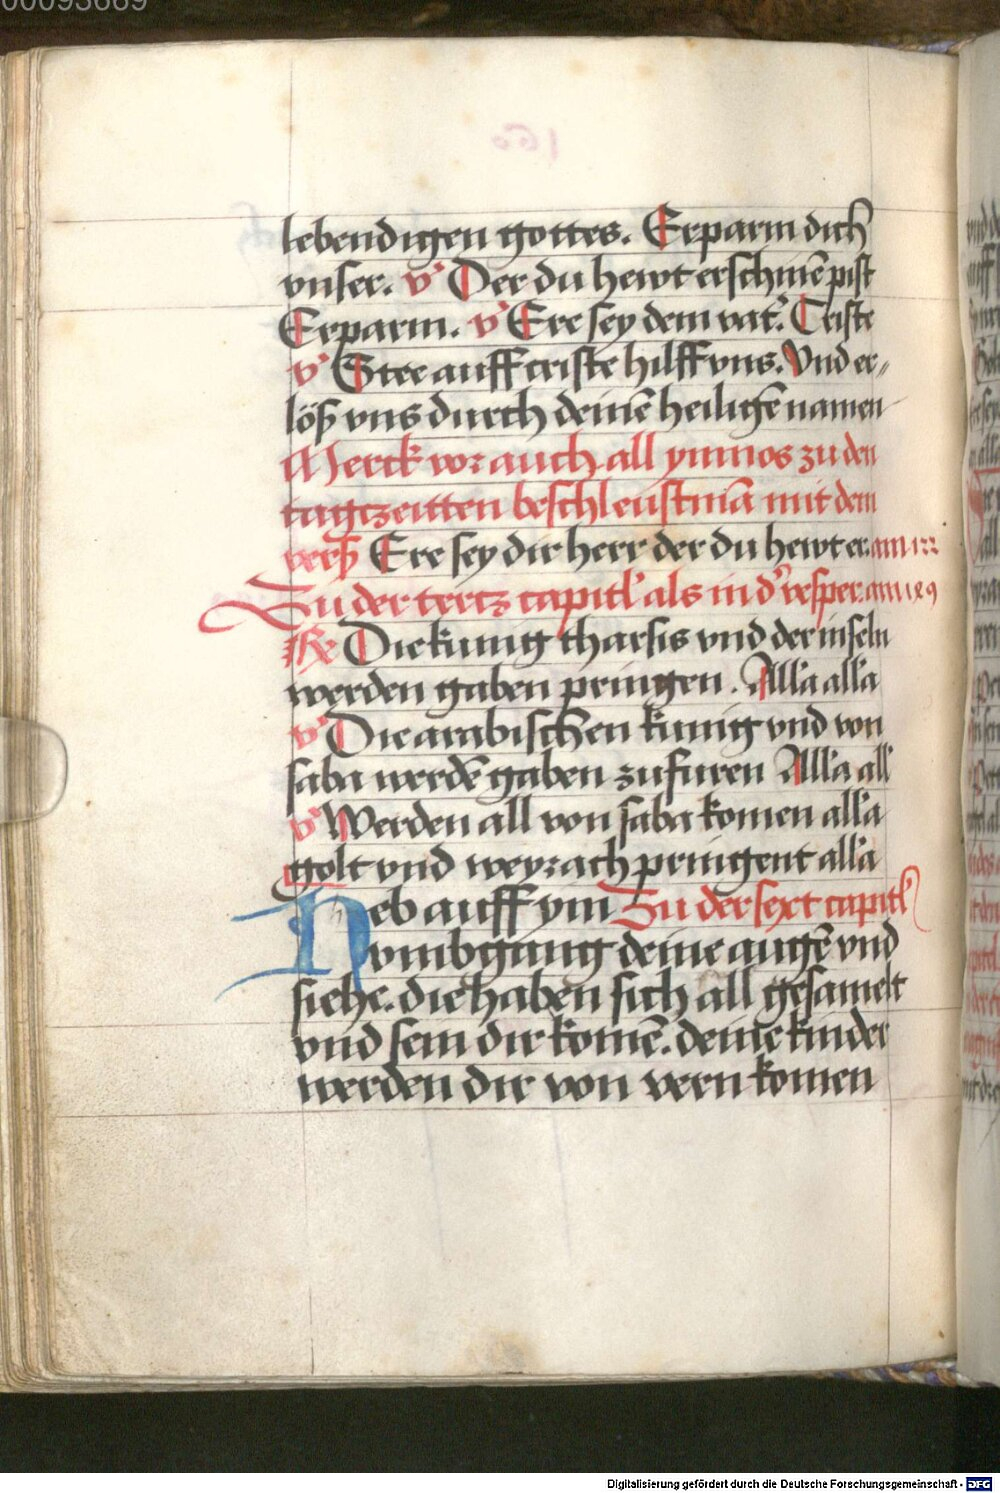 00093669
lebendigen gottes. Erparm dich
vnser. v̓ Der du hewt erschinē pist
Erparm. v̓ Ere sey dem vat̓. Criste
v̓ Stee auff criste hilff vns. Vnd er⸗
lóß vns durch deinē heiligē namen
Merck vor auch all ymnos zu den
tagczeitten beschleust mā mit dem
verß Ere sey dir herr der du hewt er.
Zu der tertz capitl̓ als in d̓ vesper.
℞ Die kunig tharsis vnd der inseln
werden gaben pringen. All̓a all̓a
v̓ Die arabischen kunig vnd von
saba werdē gaben zufuren All̓a all̓
v̓ Werden all von saba komen all̓a
golt vnd weyrach pringent all̓a
Heb auff ym Zu der sext capitl̓
vmbgang deine augē vnd
siehe. die haben sich all gesamelt
vnd sein dir komē. deine kinder
werden dir von vern komen
Digitalisierung gefördert durch die Deutsche Forschungsgemeinschaft - DFG